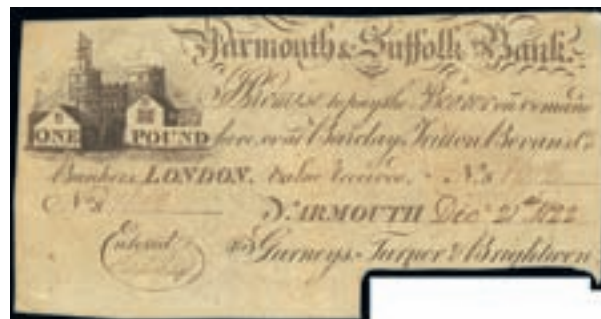 Yarmouth & Suffolk Bank.
I Promise to pay the Bearer on demand
ONE POUND
here, or at Barclay, Tritton Bevan & Co
Bankers LONDON. Value received. No
No
YARMOUTH Dec 21st 1822
Entered
For Gurneys, Turner & Brightwen